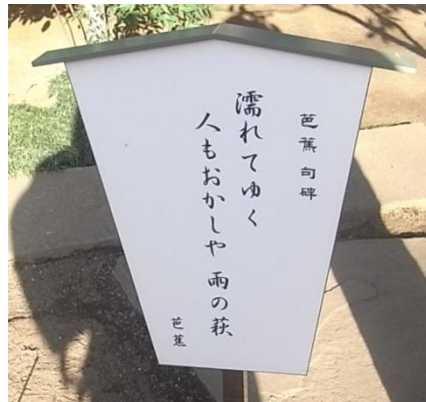 芭蕉句碑
濡れてゆく
人もおかしや 雨の萩
芭蕉